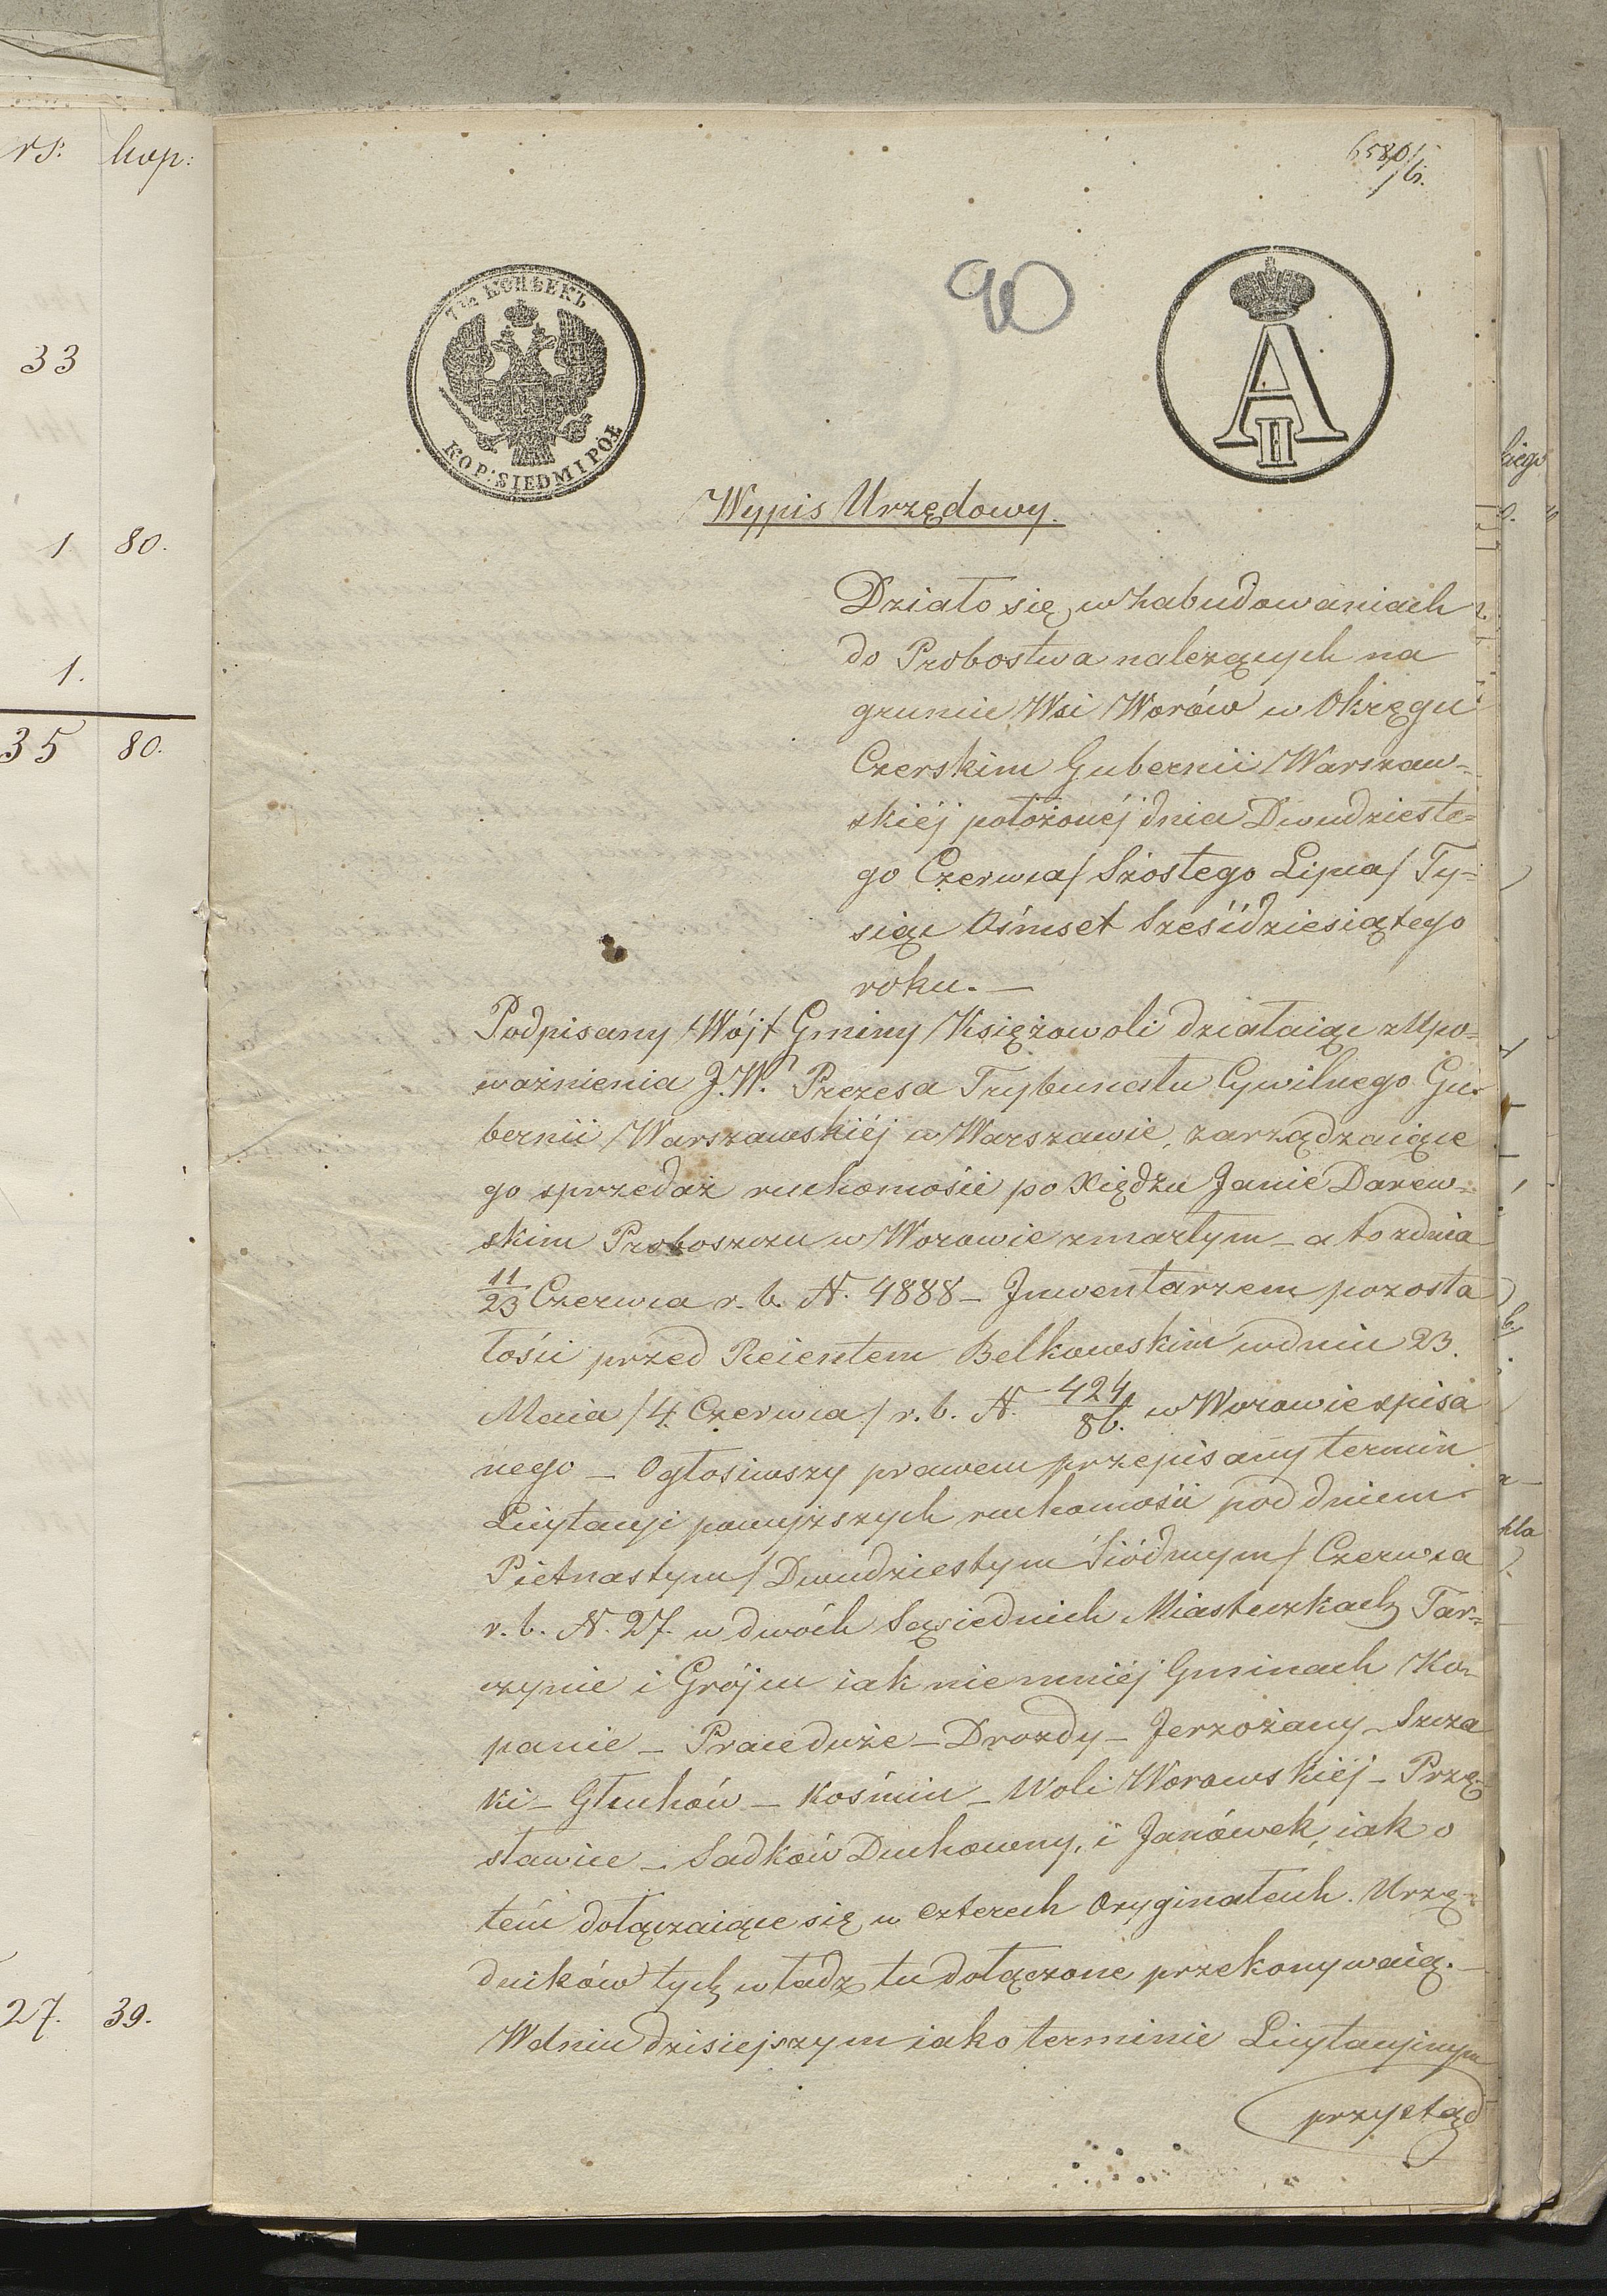 rs: kop:
33
1 80.
1.
35 80.
27. 39.
90
7½ КОПѢЕКЪ
KOP: SIEDM I PÓŁ
A II
Wypis Urzędowy.
Działo się w zabudowaniach
do Probostwa należących na
gruncie Wsi Worów w Okręgu
Czerskim Gubernii Warszaw-
skiéj położonéj dnia Dwudzieste=
go Czerwca/ Szóstego Lipca/ Ty-
siąc Ośmset Sześćdziesiątego
roku. —
Podpisany Wójt Gminy Księżowoli działaiąc z Upo-
ważnienia J.W. Prezesa Trybunału Cywilnego Gu-
bernii Warszawskiéj w Warszawie, zarządzaiące
go sprzedaż ruchomości po Xiędzu Janie Darew-
skim Proboszczu w Worowie zmarłym – a to z dnia
11/23 Czerwca r. b. N. 4888 – Inwentarzem pozosta
łości przed Reientem Belkowskim w dniu 23.
Maia /4 Czerwca/ r. b. N. 424/86. w Worowie spisa
nego – Ogłosiwszy prawem przepisany termin
Licytacyi powyższych ruchomości pod dniem
Piętnastym/ Dwudziestym Siódmym/ Czerwca
r. b. N. 27. w dwóch Sąsiednich Miasteczkach Tar=
czynie i Grójcu iak niemniéj Gminach Ko-
panie – Praceduże – Drozdy – Jerzożany – Szcza
ki – Głuchów – Kośmin – Woli Worowskiéj – Przę-
sławice – Sadków Duchowny, i Janówek, iak o
tém dołączaiące się w czterech Oryginałach Urzę-
dników tych władz tu dołączone przekonywaią. –
W dniu dzisiejszym iako terminie Licytacyinym
przystąp